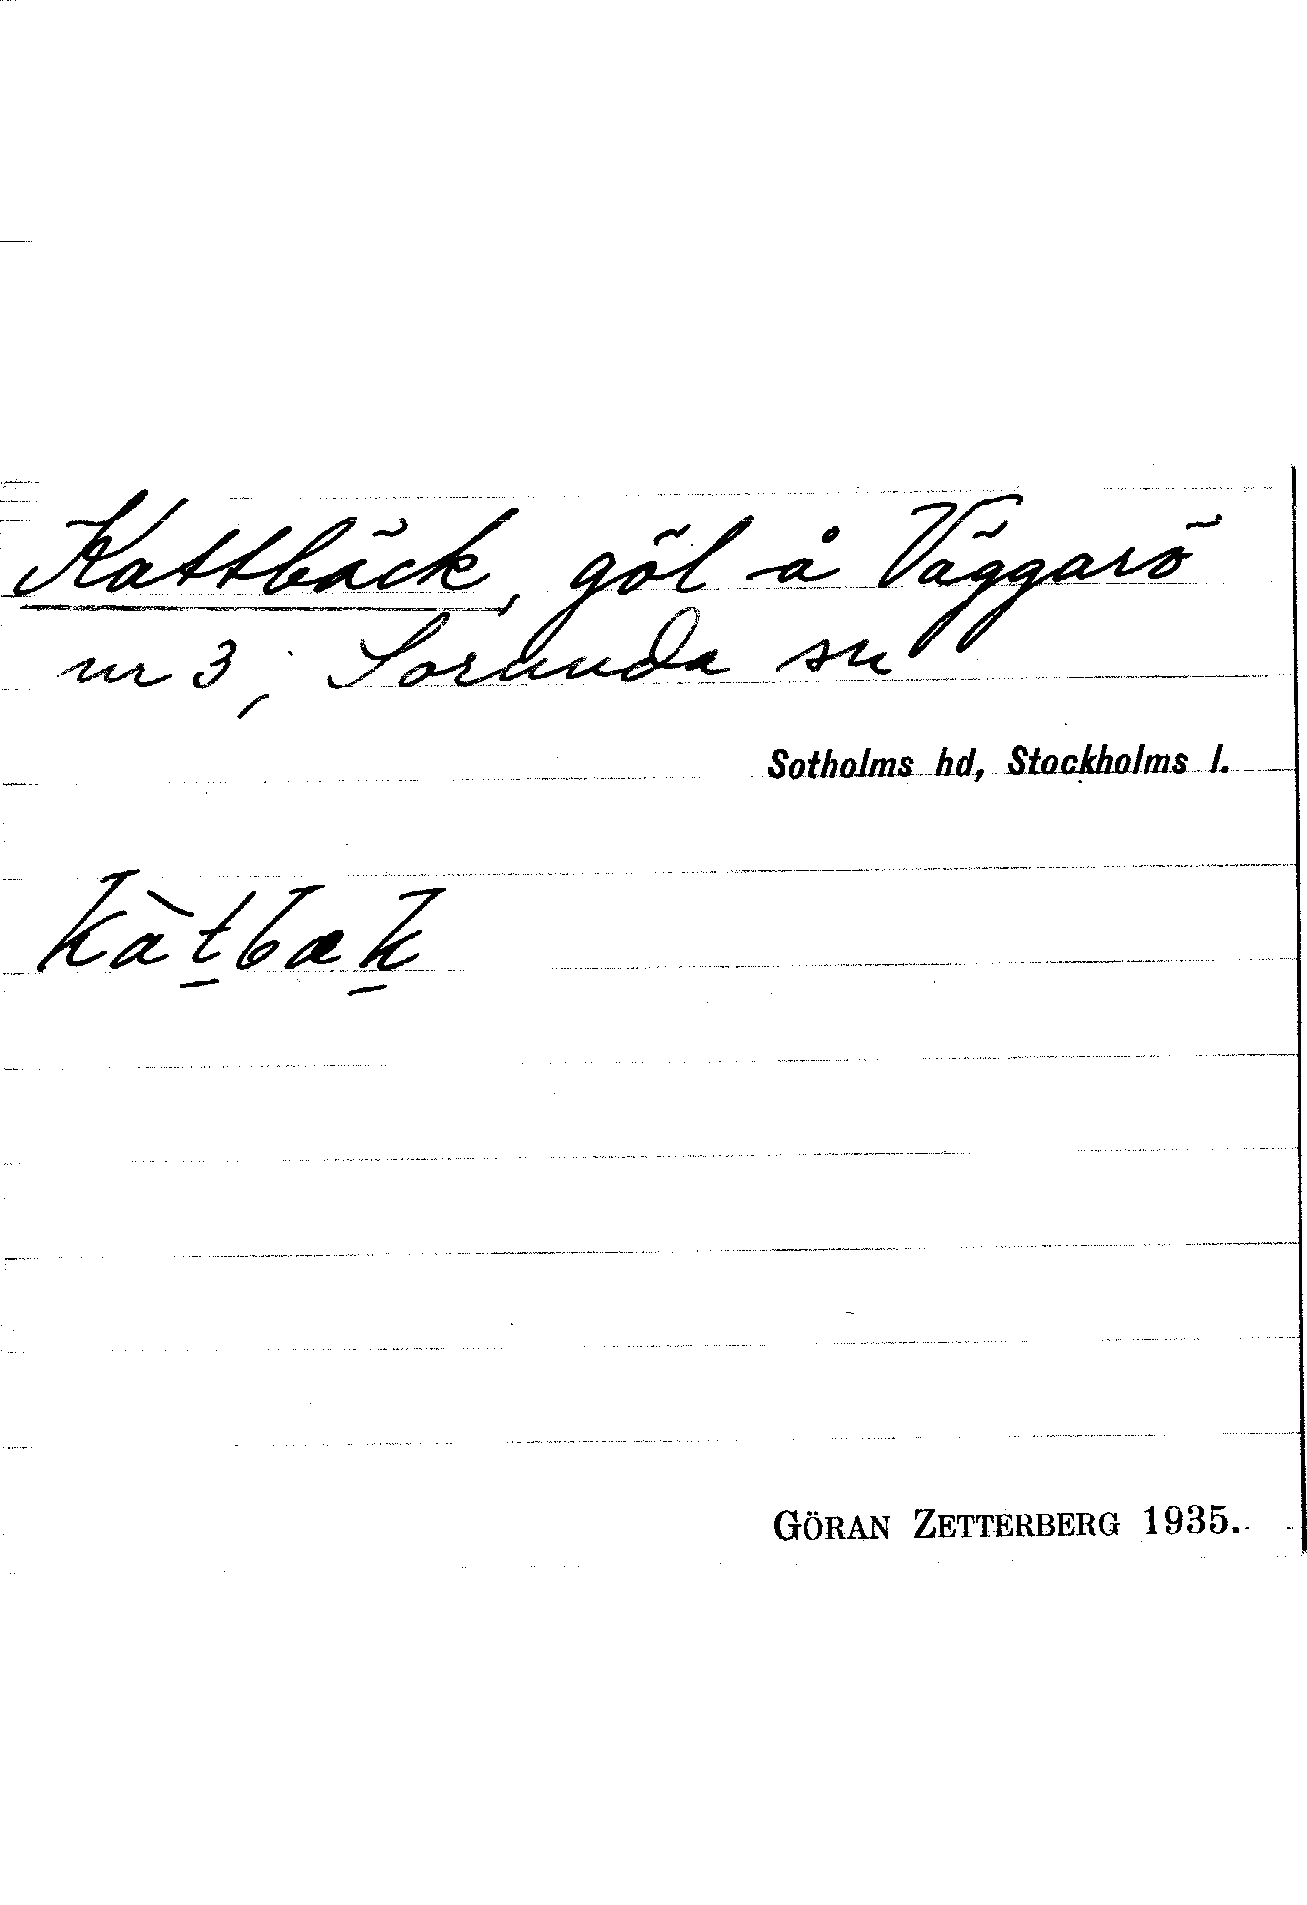 Kattbäck, göl å Väggarö
nr 3; Sorunda sn
Sotholms hd, Stockholms l.
kàt̠bæk̠
GÖRAN ZETTERBERG 1935.